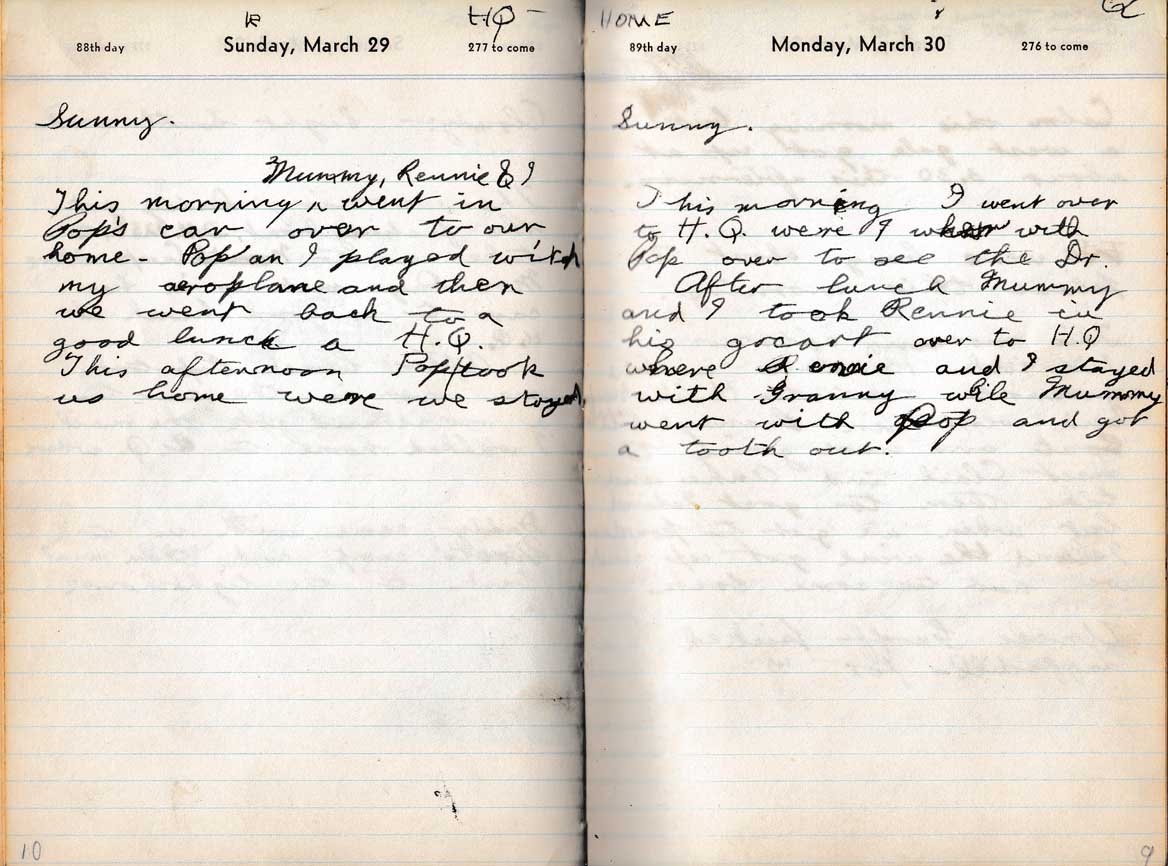 HQ -
88th day Sunday, March 29 277 to come
Sunny.
Mummy, Rennie & I
This morning ^ went in
Pop's car over to our
home - Pop an I played with
my aeroplane and then
we went back to a
good lunch a H.Q.
This afternoon Pop took
us home were we stayed
10
HOME
89th day Monday, March 30 276 to come
Sunny.
This morning I went over
to H.Q. were I with
Pop over to see the Dr.
After lunch Mummy
and I took Rennie in
his gocart over to H.Q
where Rennie and I stayed
with Granny wile Mummy
went with Pop and got
a tooth out.
9